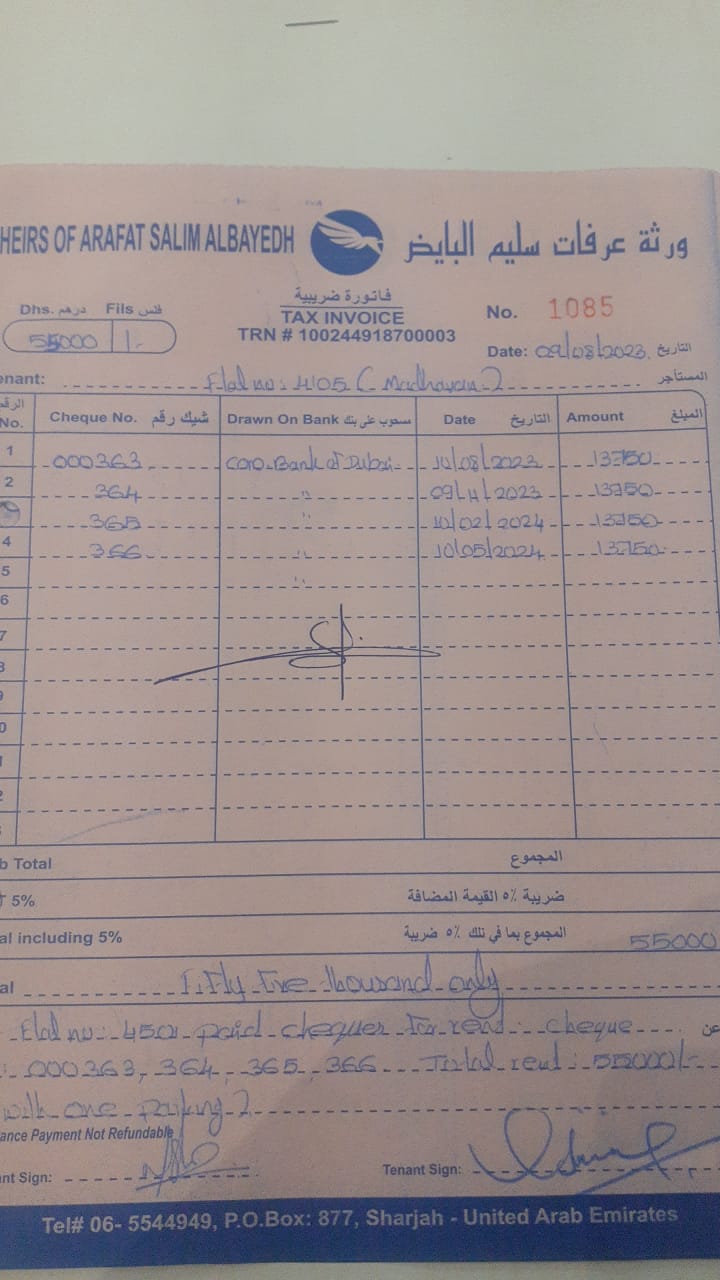 HEIRS OF ARAFAT SALIM ALBAYEDH ورثة عرفات سليم البايض
Dhs. درهم Fils فلس
55000 /-
فاتورة ضريبية
TAX INVOICE
TRN # 100244918700003
No. 1085
Date: 09/08/2023. التاريخ
enant: Flat no: 4105 ( Madhavan ) المستأجر
الرقم No. Cheque No. شيك رقم Drawn On Bank مسحوب على بنك Date التاريخ Amount المبلغ
1 000363 Bank of Dubai 10/08/2023 13750
2 364 " 09/11/2023 13750
365 " 10/02/2024 13750
4 366 " 10/05/2024 13750
5 "
6
7
8
9
0
1
2
3
b Total المجموع
T 5% ضريبة ٥% القيمة المضافة
al including 5% المجموع بما في تلك ٥% ضريبة 55000
al Fifty Five thousand only
Flat no: paid cheques for rent: cheque عن
: 000363, 364, 365, 366 Total rent: 55000/-
with one parking )
ance Payment Not Refundable
nt Sign: Tenant Sign:
Tel# 06- 5544949, P.O.Box: 877, Sharjah - United Arab Emirates